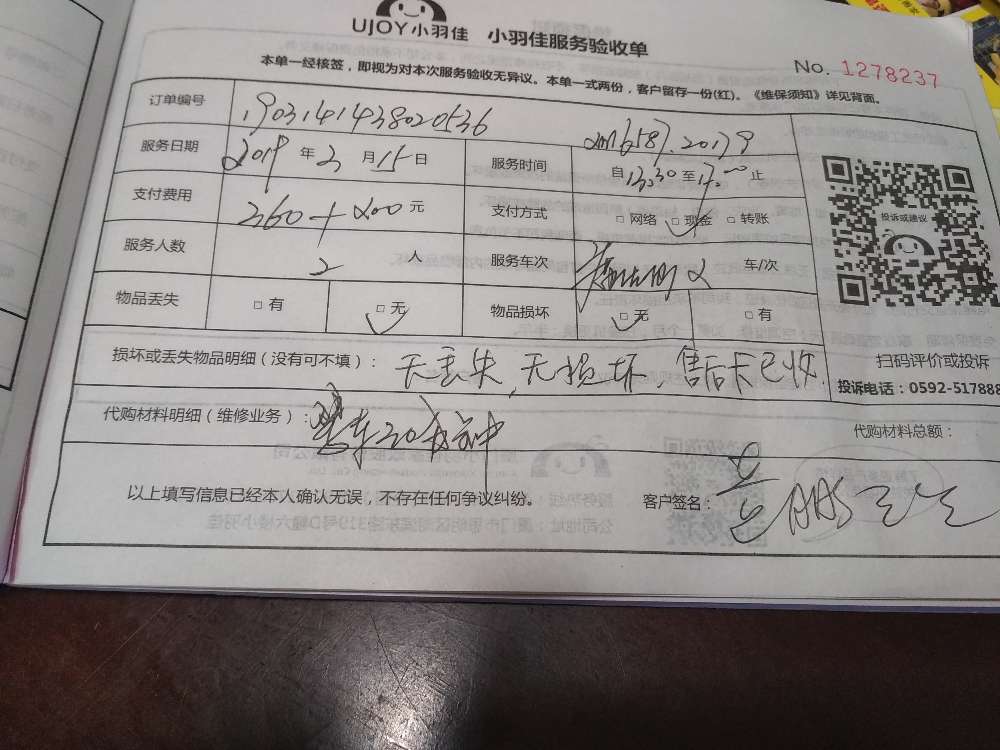 UJOY小羽佳 小羽佳服务验收单
No. 1278237
本单一经核签，即视为对本次服务验收无异议。本单一式两份，客户留存一份(红)。《维保须知》详见背面。
订单编号 1903141438020536
服务日期 2019 年 3 月 15 日 服务时间 自 13:30 至 17:00 止
支付费用 360+200 元 支付方式 □ 网络 □ 现金 □ 转账
服务人数 2 人 服务车次 2 车/次
物品丢失 □ 有 □ 无 物品损坏 □ 无 □ 有
投诉或建议
扫码评价或投诉
投诉电话：0592-517888
损坏或丢失物品明细（没有可不填）： 无丢失，无损坏，售后卡已收
代购材料明细（维修业务）：
代购材料总额：
以上填写信息已经本人确认无误，不存在任何争议纠纷。 客户签名：